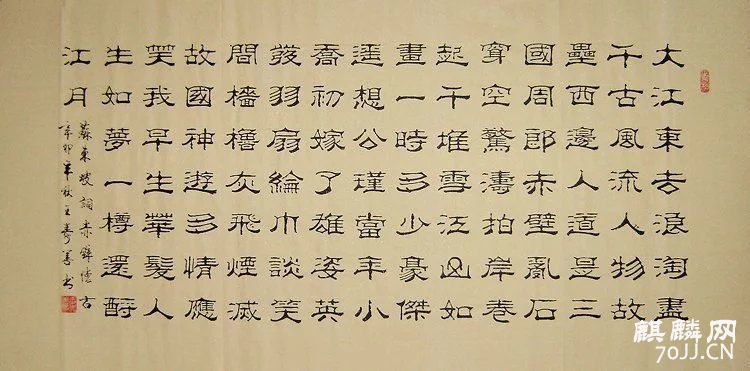 大江東去浪淘盡
千古風流人物故
壘西邊人道是三
國周郎赤壁亂石
穿空驚濤拍岸卷
起千堆雪江山如
畫一時多少豪傑
遥想公瑾當年小
喬初嫁了雄姿英
發羽扇綸巾談笑
間檣櫓灰飛煙滅
故國神遊多情應
笑我早生華髮人
生如夢一樽還酹
江月
蘇東坡詞赤壁懷古
辛卯年秋王壽善书
麒麟网
70JJ.CN